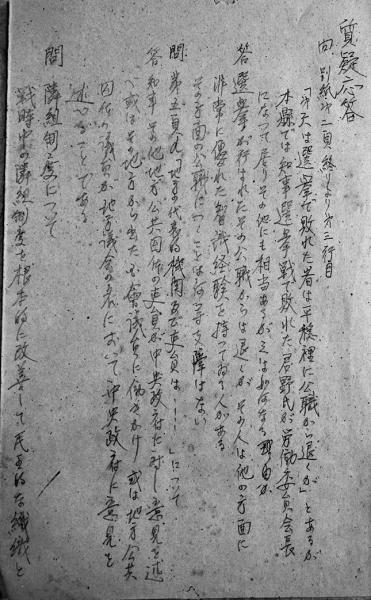 質疑応答
問 別紙第一頁終より第三行目
「市天は選挙で敗れた者は平穏裡に公職から退くが」とあるが
本縣では知事選挙戦で敗れた君野氏が労働委員会長
になって居りその他にも相当あるが之は如何なる理由か
答 選挙が行はれたその公職からは退くがその人は他の方面に
非常に優れた智識経験を持っておる人がある
その方面の公職につくことは何等支障はない
問 第五頁九「地方の代表的機関及吏員は……」について
答 知事その他地方公共団体の吏員が中央政府に対し意見を述
べ或はその地方から出た国会議員に働きかけ或は地方公共
団体の議員が地方議会の名において中央政府に意見を
述べることである
問 隣組制度について
戦時中の隣組制度を根本的に改善して民主的な組織と